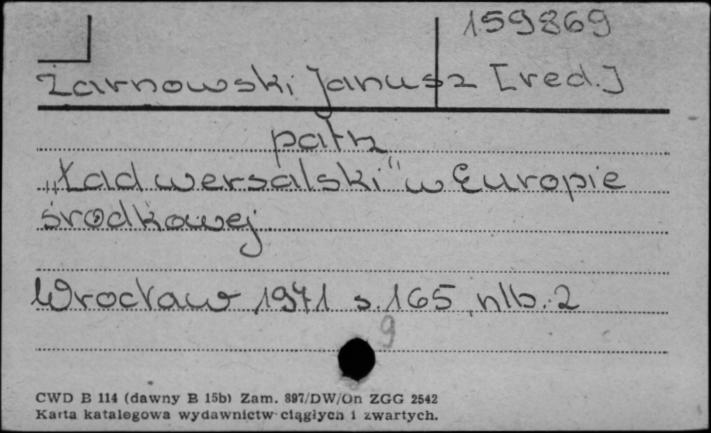 159869
Żarnowski Janusz [red.]
patrz
„Ład wersalski" w Europie
środkowej
Wrocław 1971 s. 165, nlb. 2
9
CWD B 114 (dawny B 15b) Zam. 897/DW/On ZGG 2542
Karta katalogowa wydawnictw ciągłych i zwartych.